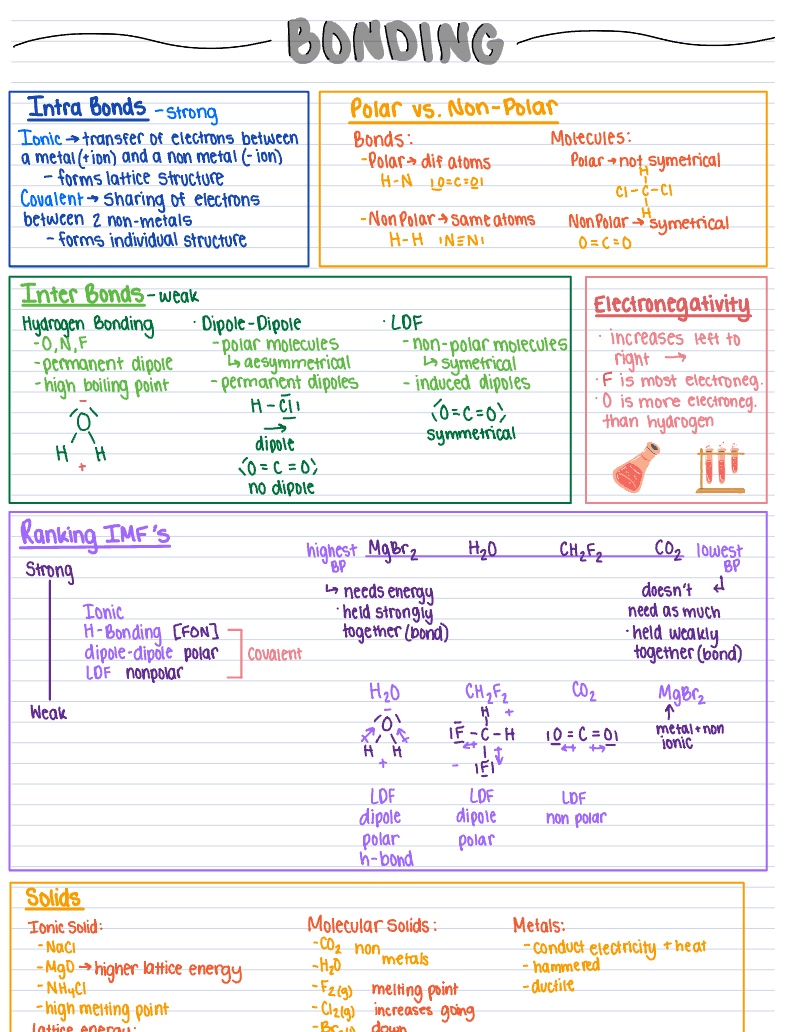 BONDING
Intra Bonds - strong
Ionic → transfer of electrons between
a metal (+ion) and a non metal (- ion)
- forms lattice structure
Covalent → sharing of electrons
between 2 non-metals
- forms individual structure
Polar vs. Non-Polar
Bonds:
-Polar → dif atoms
H-N |O=C=O|
-NonPolar → same atoms
H-H |N≡N|
Molecules:
Polar → not symetrical
H
Cl-C-Cl
H
NonPolar → symetrical
O=C=O
Inter Bonds - weak
Hydrogen Bonding
-O,N,F
-permanent dipole
-high boiling point
-
O
H H
+
· Dipole-Dipole
-polar molecules
↳ aesymmetrical
-permanent dipoles
H-Cl|
→
dipole
O=C=O
no dipole
· LDF
-non-polar molecules
↳ symetrical
- induced dipoles
O=C=O
symmetrical
Electronegativity
· increases left to
right →
· F is most electroneg.
· O is more electroneg.
than hydrogen
Ranking IMF's
Strong
Ionic
H-Bonding [FON]
dipole-dipole polar
LDF nonpolar
Covalent
Weak
highest BP MgBr₂ H₂O CH₂F₂ CO₂ lowest BP
↳ needs energy
· held strongly
together (bond)
doesn't
need as much
· held weakly
together (bond)
H₂O
-
O
H H
+
LDF
dipole
polar
h-bond
CH₂F₂
H +
|F-C-H
- |F|
LDF
dipole
polar
CO₂
|O=C=O|
LDF
non polar
MgBr₂
↑
metal+non
ionic
Solids
Ionic Solid:
-NaCl
-MgO → higher lattice energy
-NH₄Cl
-high melting point
lattice energy:
Molecular Solids:
-CO₂ non
metals
-H₂O
-F₂(g) melting point
-Cl₂(g) increases going
-Br₂(l) down
Metals:
-conduct electricity + heat
-hammered
-ductile